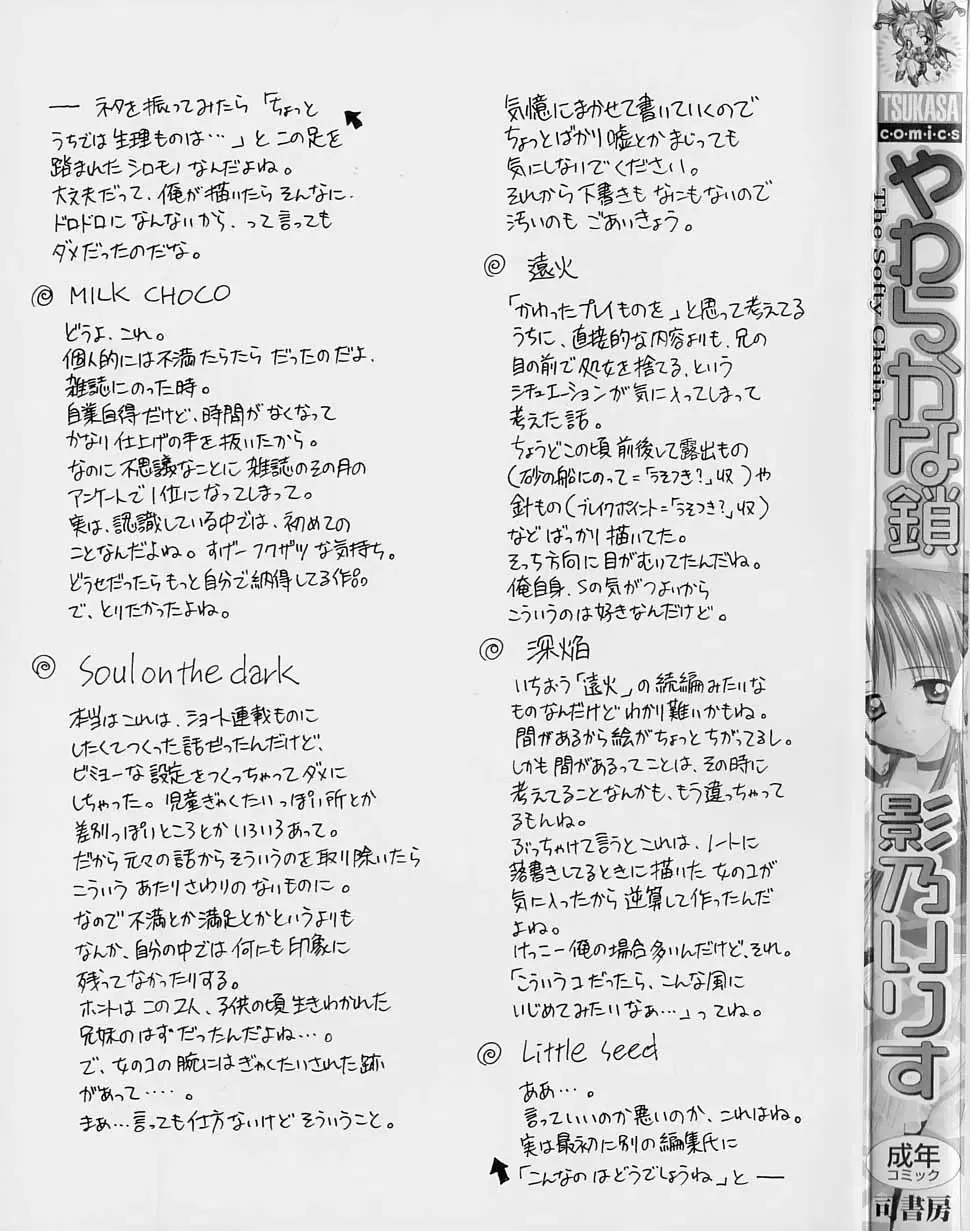 気憶にまかせて書いていくので
ちょっとばかり嘘とかまじっても
気にしないでください。
それから下書きもなにもないので
汚いのもごあいきょう。
遠火
「かわったプレイものを」と思って考えてる
うちに、直接的な内容よりも、兄の
目の前で処女を捨てる、という
シチュエーションが気に入ってしまって
考えた話。
ちょうどこの頃前後して露出もの
(砂の船にのって=「うそつき?」収)や
針もの(ブレイクポイント=「うそつき?」収)
などばかり描いてた。
そっち方向に目がむいてたんだね。
俺自身、Sの気がつよいから
こういうのは好きなんだけど。
深焔
いちおう「遠火」の続編みたいな
ものなんだけどわかり難いかもね。
間があるから絵がちょっとちがってるし。
しかも間があるってことは、その時に
考えてることなんかも、もう違っちゃって
るもんね。
ぶっちゃけて言うとこれは、ノートに
落書きしてるときに描いた女のコが
気に入ったから逆算して作ったんだ
よね。
けっこー俺の場合多いんだけど、それ。
「こういうコだったら、こんな風に
いじめてみたいなぁ…」ってね。
Little seed
ああ…。
言っていいのか悪いのか、これはね。
実は最初に別の編集氏に
「こんなのはどうでしょうね」と ―
― ネタを振ってみたら「ちょっと
うちでは生理ものは…」とこの足を
踏まれたシロモノなんだよね。
大丈夫だって、俺が描いたらそんなに
ドロドロになんないから、って言っても
ダメだったのだな。
MILK CHOCO
どうよ、これ。
個人的には不満たらたらだったのだよ、
雑誌にのった時。
自業自得だけど、時間がなくなって
かなり仕上げの手を抜いたから。
なのに不思議なことに雑誌のその月の
アンケートで1位になってしまって。
実は、認識している中では、初めての
ことなんだよね。すげーフクザツな気持ち。
どうせだったらもっと自分で納得してる作品
で、とりたかったよね。
Soul on the dark
本当はこれは、ショート連載ものに
したくてつくった話だったんだけど、
ビミョーな設定をつくっちゃってダメに
しちゃった。児童ぎゃくたいっぽい所とか
差別っぽいところとかいろいろあって。
だから元々の話からそういうのを取り除いたら
こういうあたりさわりのないものに。
なので不満とか満足とかというよりも
なんか、自分の中では何にも印象に
残ってなかったりする。
ホントはこの2人、子供の頃生きわかれた
兄妹のはずだったんだよね…。
で、女のコの腕にはぎゃくたいされた跡
があって……。
まぁ…言っても仕方ないけどそういうこと。
TSUKASA
comics
やわらかな鎖
The Softy Chain.
影乃いりす
成年
コミック
司書房